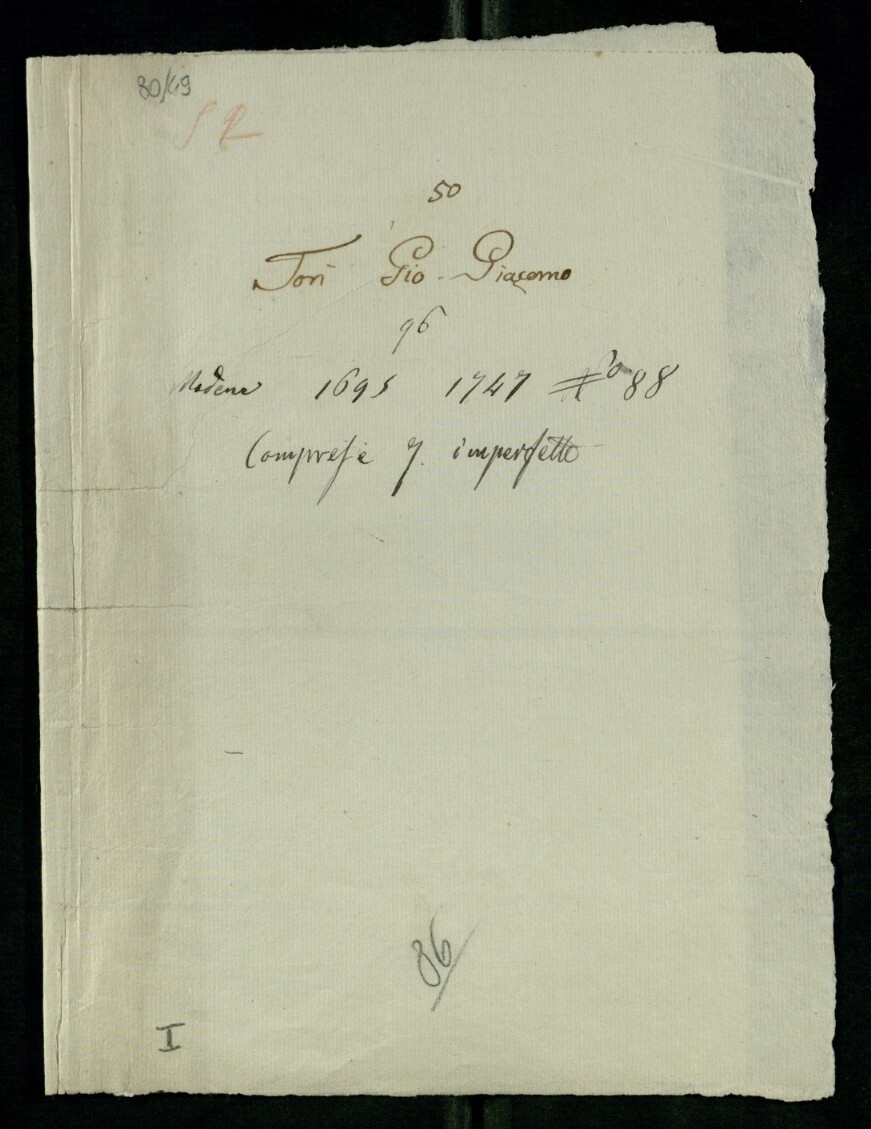 80/49
S R
50
Tori Gio. Giacomo
96
Modena 1695 1747 88
Comprese 7. imperfette
86
I